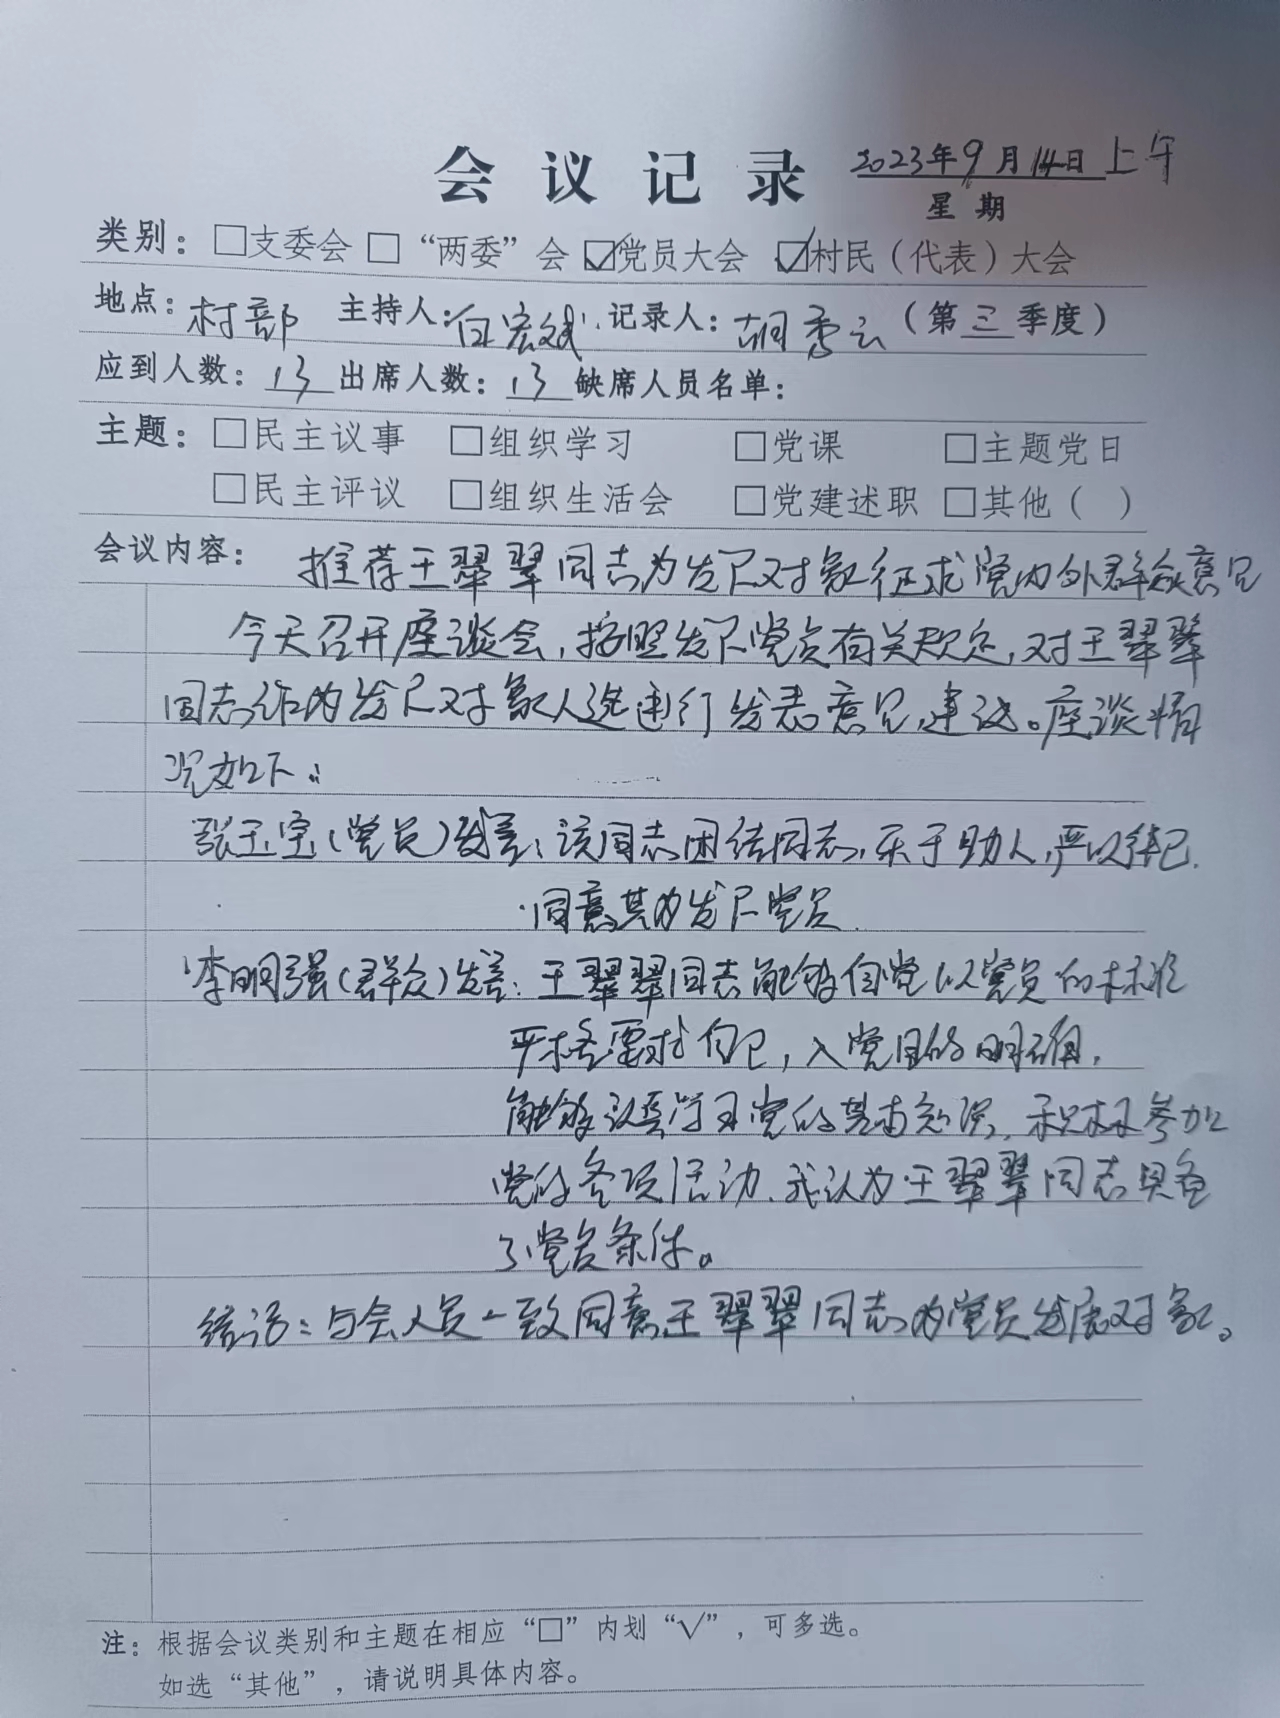 会议记录 2023年9月14日上午
星期
类别：□支委会 □“两委”会 ☑党员大会 ☑村民（代表）大会
地点：村部 主持人：白宏斌 记录人：胡秀云（第三季度）
应到人数：13 出席人数：13 缺席人员名单：
主题：□民主议事 □组织学习 □党课 □主题党日
□民主评议 □组织生活会 □党建述职 □其他（ ）
会议内容：推荐王翠翠同志为发展对象征求党内外群众意见
今天召开座谈会，按照发展党员有关规定，对王翠翠
同志作为发展对象人选进行发表意见，建议。座谈情
况如下：
张玉宝（党员）发言：该同志团结同志，乐于助人，严以律己，
同意其为发展党员
李明强（群众）发言：王翠翠同志能够自觉以党员的标准
严格要求自己，入党目的明确，
能够认真学习党的基本知识，积极参加
党的各项活动、我认为王翠翠同志具备
了党员条件。
结论：与会人员一致同意王翠翠同志为党员发展对象。
注：根据会议类别和主题在相应“□”内划“√”，可多选。
如选“其他”，请说明具体内容。